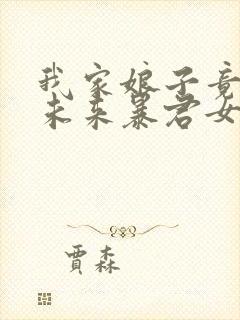 我家娘子竟
未来暴君女
賈森